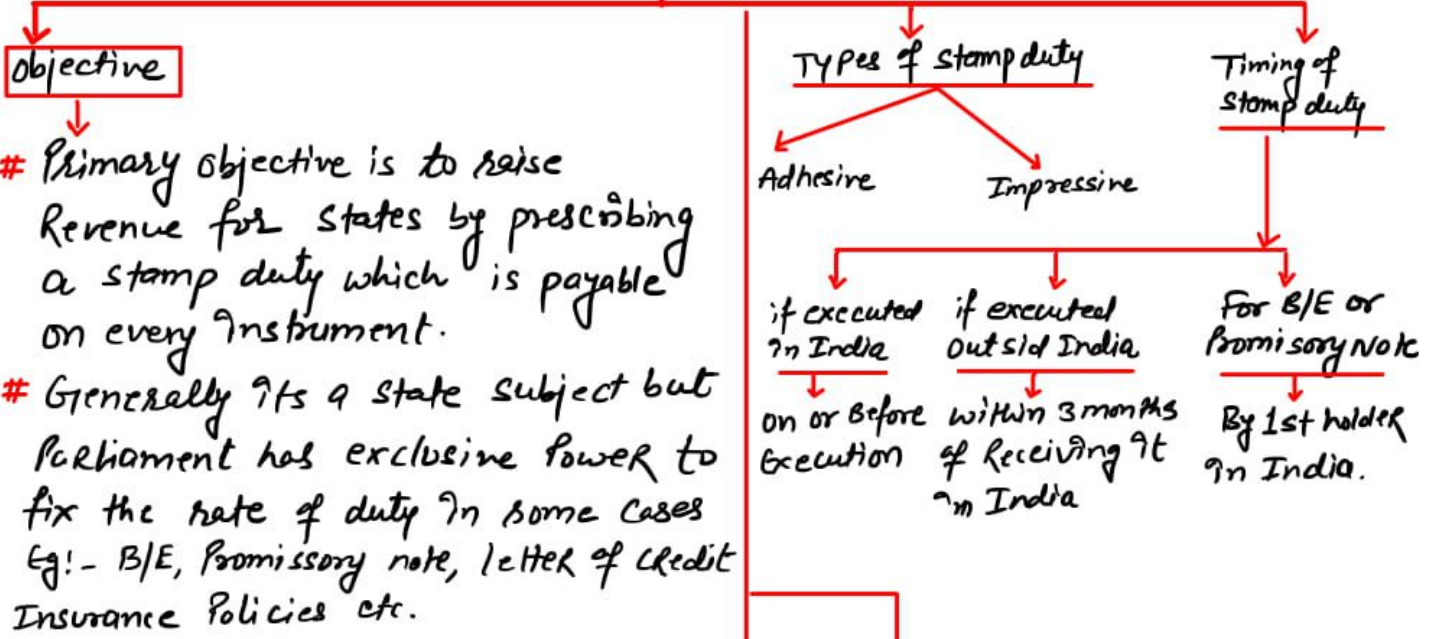 Objective
# Primary objective is to raise
Revenue for states by prescribing
a stamp duty which is payable
on every Instrument.
# Generally its a state subject but
Parliament has exclusive Power to
fix the rate of duty in some cases
Eg:- B/E, Promissory note, letter of credit
Insurance Policies etc.
Types of stamp duty
Adhesive
Impressive
Timing of
stamp duty
if executed
in India
on or Before
Execution
if executed
outsid India
within 3 months
of Receiving it
in India
For B/E or
Promisory Note
By 1st holder
in India.